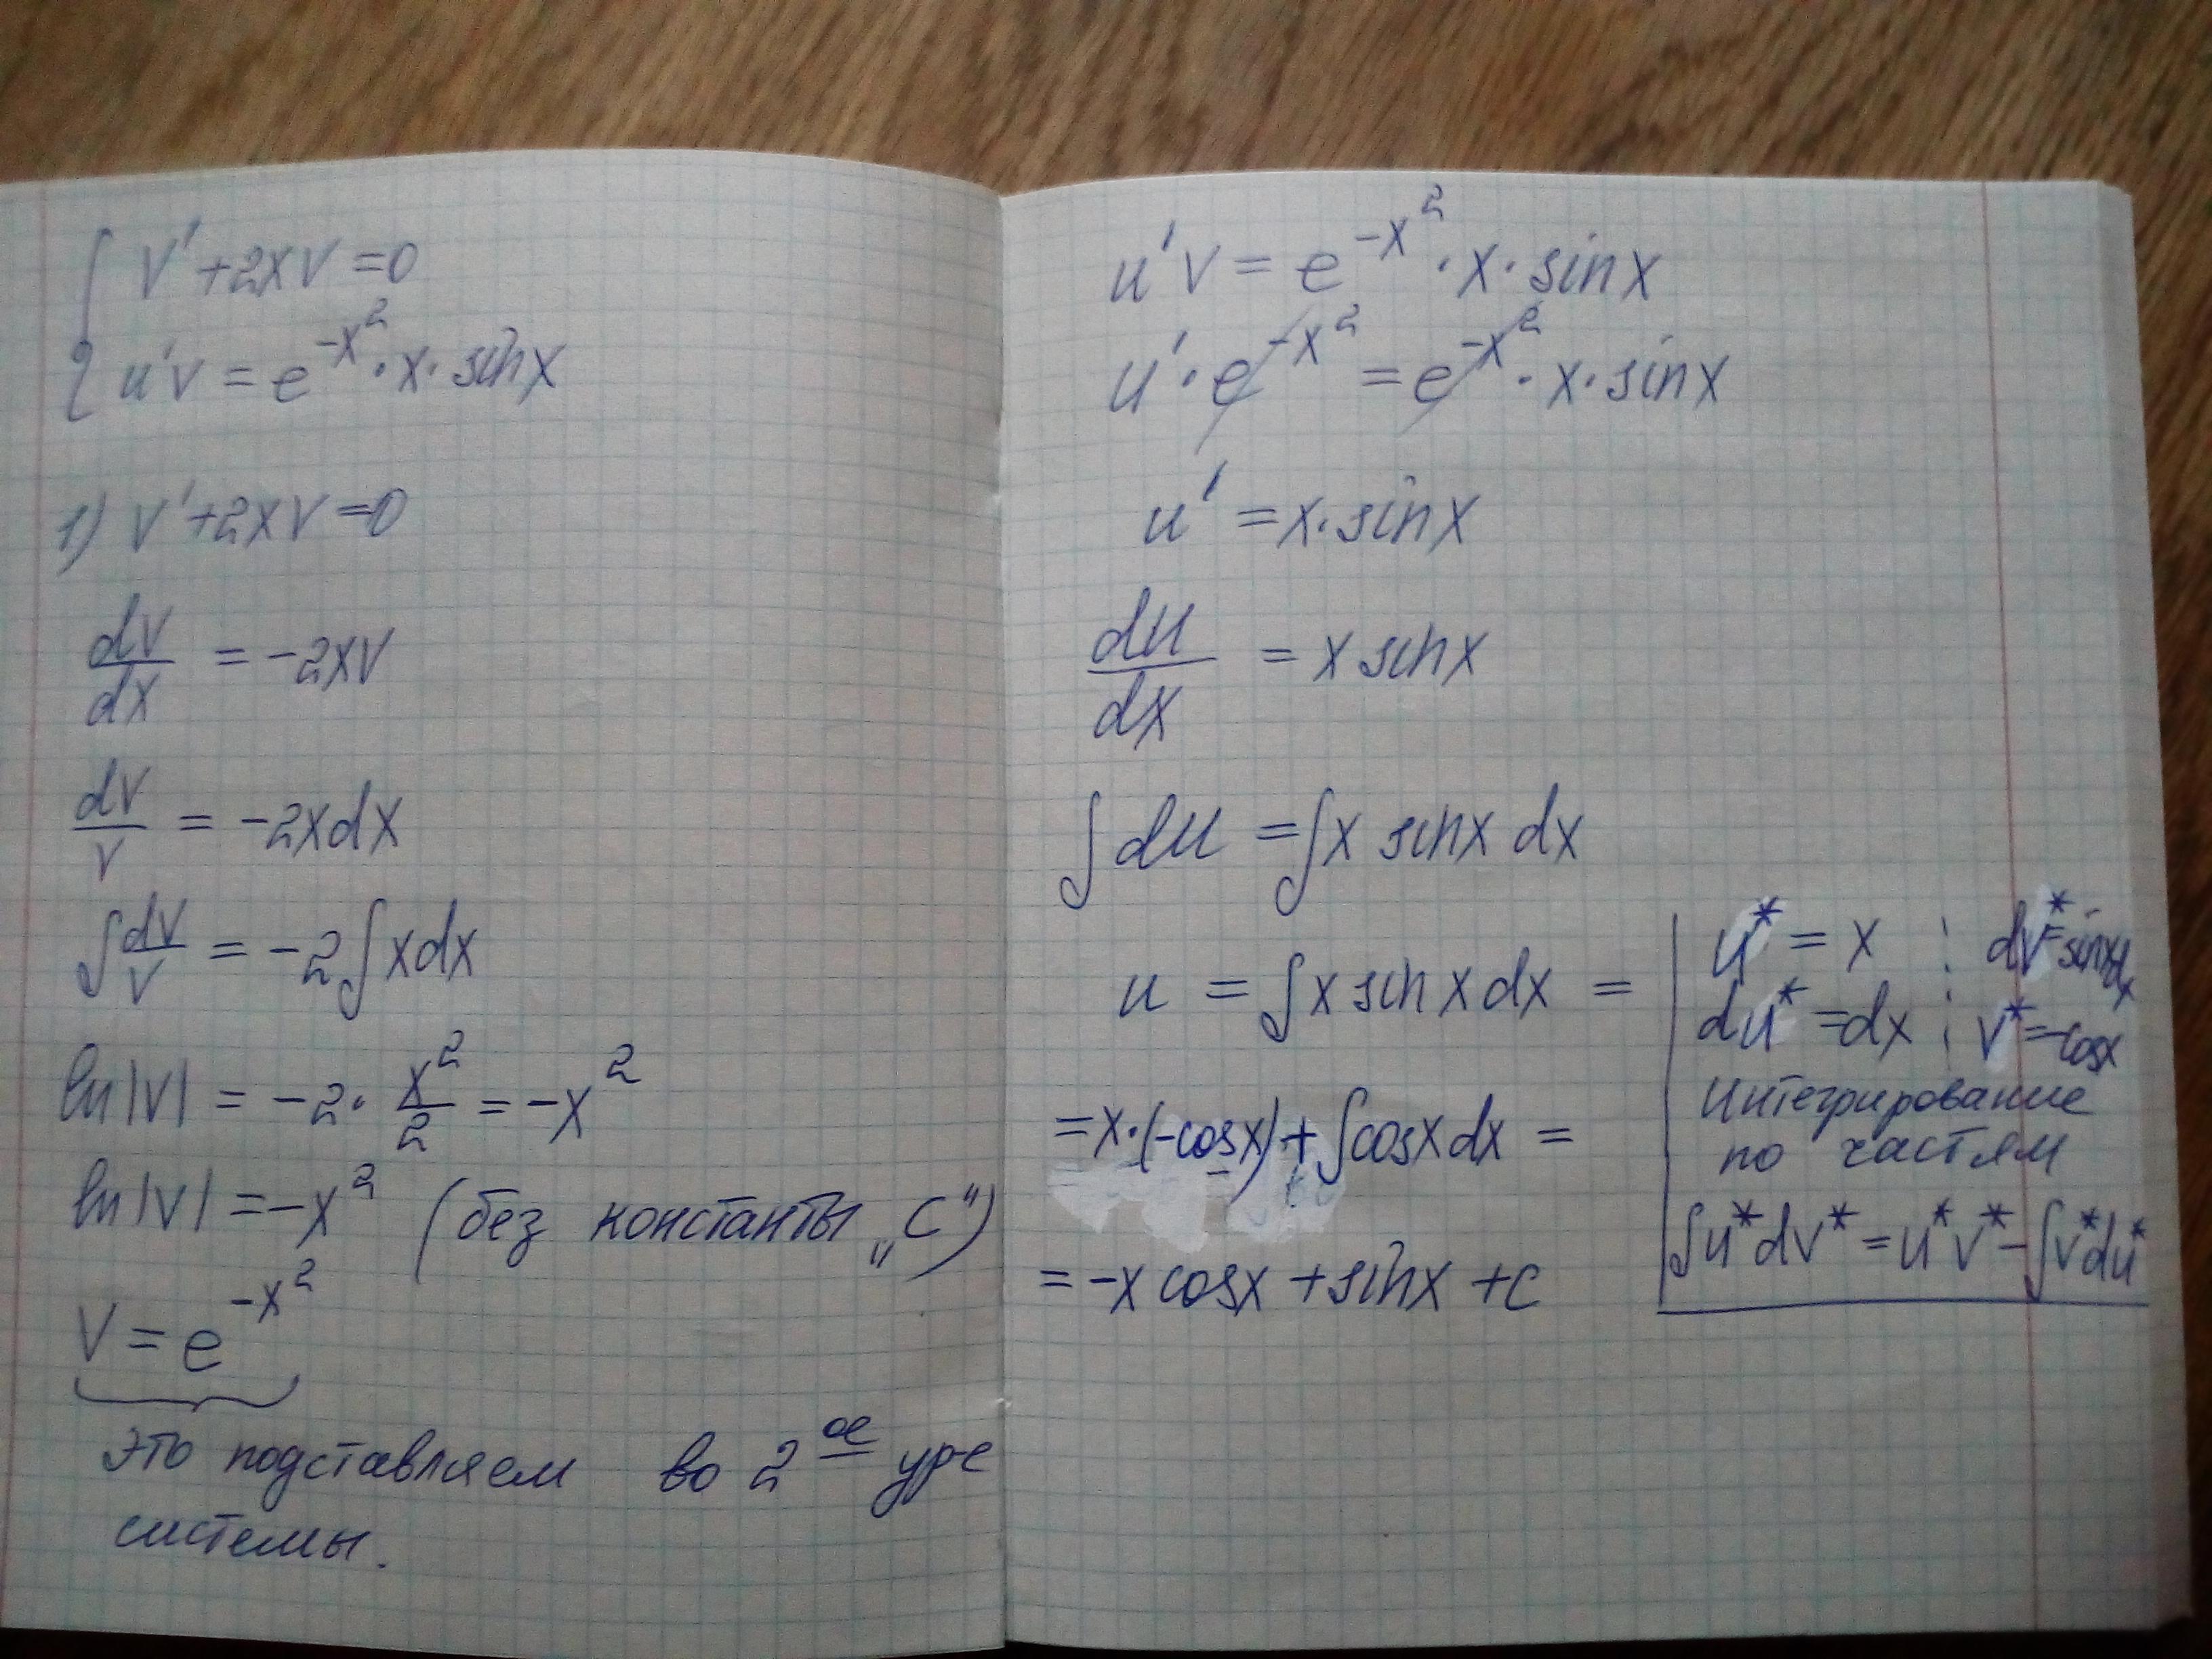 { v' + 2xv = 0
u'v = e^{-x^2} · x · sinx
1) v' + 2xv = 0
dv/dx = -2xv
dv/v = -2xdx
∫ dv/v = -2∫xdx
ln|v| = -2 · x^2/2 = -x^2
ln|v| = -x^2 (без константы „C“)
v = e^{-x^2}
это подставляем во 2ое ур-е
системы.
u'v = e^{-x^2} · x · sinx
u' · e^{-x^2} = e^{-x^2} · x · sinx
u' = x · sinx
du/dx = x sinx
∫du = ∫x sinx dx
u = ∫x sinx dx =
u* = x ; dv* = sinxdx
du* = dx ; v* = -cosx
Интегрирование
по частям
∫u*dv* = u*v* - ∫v*du*
= x · (-cosx) + ∫cosx dx =
= -x cosx + sinx + c